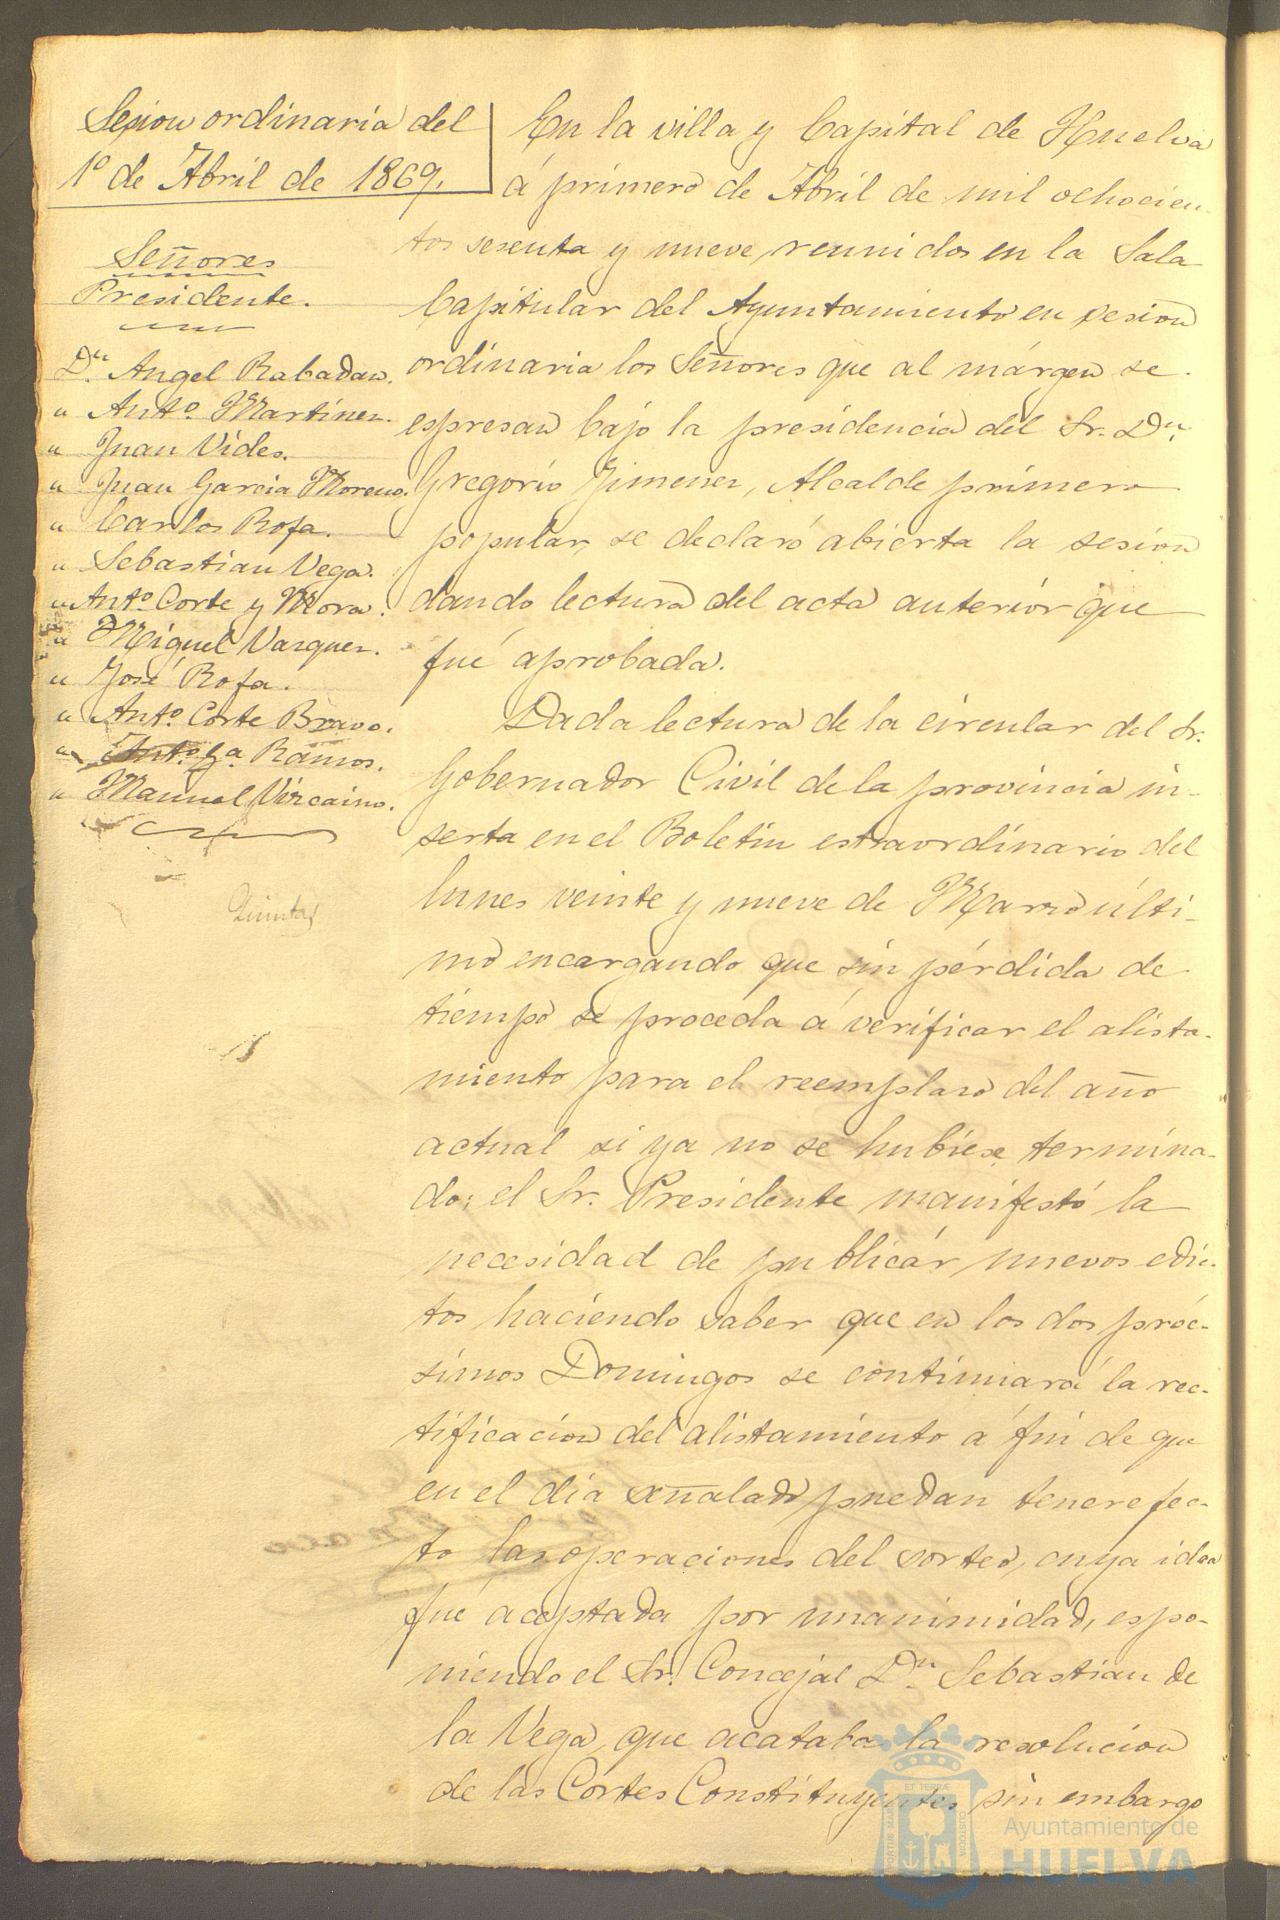 Sesion ordinaria del
1º de Abril de 1869.
Señores
Presidente.
Dn. Angel Rabadan.
" Antº Martinez.
" Juan Vides.
" Juan Garcia Moreno.
" Carlos Rofa.
" Sebastian Vega.
" Antº Corte y Mora.
" Miguel Vazquez.
" José Rofa.
" Antº Corte Bravo.
" Antº Gª Ramos.
" Manuel Vizcaino.
Quintas
En la villa y Capital de Huelva
á primero de Abril de mil ochocien-
tos sesenta y nueve, reunidos en la Sala
Capitular del Ayuntamiento en sesion
ordinaria los Señores que al márgen se
espresan bajo la presidencia del Sr. Dn.
Gregorio Jimenez, Alcalde primero
popular, se declaró abierta la sesion
dando lectura del acta anterior que
fué aprobada.
Dada lectura de la circular del Sr.
Gobernador Civil de la provincia in-
serta en el Boletin estraordinario del
lunes veinte y nueve de Marzo últi-
mo encargando que sin pérdida de
tiempo se proceda á verificar el alista-
miento para el reemplazo del año
actual si ya no se hubiese termina-
do; el Sr. Presidente manifestó la
necesidad de publicár nuevos edic-
tos haciendo saber que en los dos próc-
simos Domingos se continuará la rec-
tificacion del alistamiento á fin de que
en el dia señalado puedan tener efec-
to las operaciones del sorteo, cuya idea
fué aceptada por unanimidad, espo-
niendo el Sr. Concejal Dn. Sebastian de
la Vega, que acataba la resolucion
de las Cortes Constituyentes sin embargo
PORTUS MARIS
ET TERRÆ
CUSTODIA
Ayuntamiento de
HUELVA